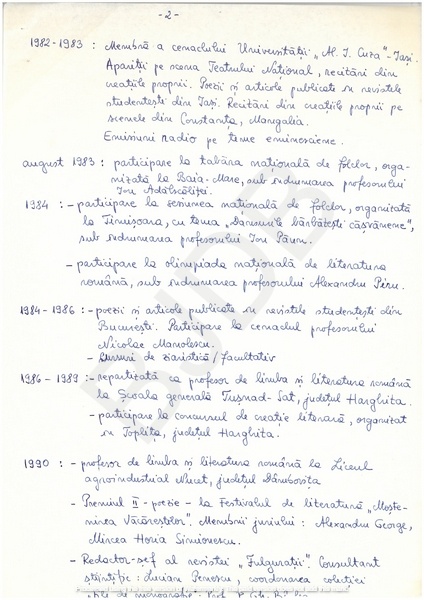 - 2 -
1982-1983 : Membră a cenaclului Universității „Al. I. Cuza" - Iași.
Apariții pe scena Teatrului Național, recitări din
creațiile proprii. Poezii și articole publicate în revistele
studentești din Iași. Recitări din creațiile proprii pe
scenele din Constanța, Mangalia.
Emisiuni radio pe teme eminesciene.
august 1983 : participare la tabăra națională de folclor, orga-
nizată la Baia-Mare, sub îndrumarea profesorului
Ion
1984 : - participare la sesiunea națională de folclor, organizată
la Timișoara, cu tema „Dansurile bărbătești",
sub îndrumarea profesorului Ion
- participare la olimpiada națională de literatura
română, sub îndrumarea profesorului Alexandru Piru.
1984 - 1986 : - poezii și articole publicate în revistele studentești din
București. Participare la cenaclul profesorului
Nicolae Manolescu.
- Cursuri de ziaristică / facultativ
1986 - 1989 : - repartizată ca profesor de limba și literatura română
la Școala generală Tușnad-Sat, județul Harghita.
- participare la concursul de creație literară, organizat
în Toplița, județul Harghita.
1990 : - profesor de limba și literatura română la Liceul
agroindustrial Nucet, județul Dâmbovița
- Premiul II - poezie - la Festivalul de literatură „Moște-
nirea Văcăreștilor". Membrii juriului : Alexandru George,
Mircea Horia Simionescu.
- Redactor-șef al revistei „Fulgurații". Consultant
științific : Lucian Penescu, coordonarea